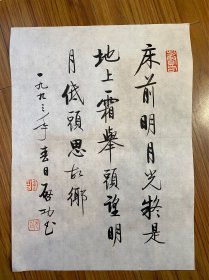 床前明月光疑是
地上霜舉頭望明
月低頭思故鄉
一九九三年春日啟功書